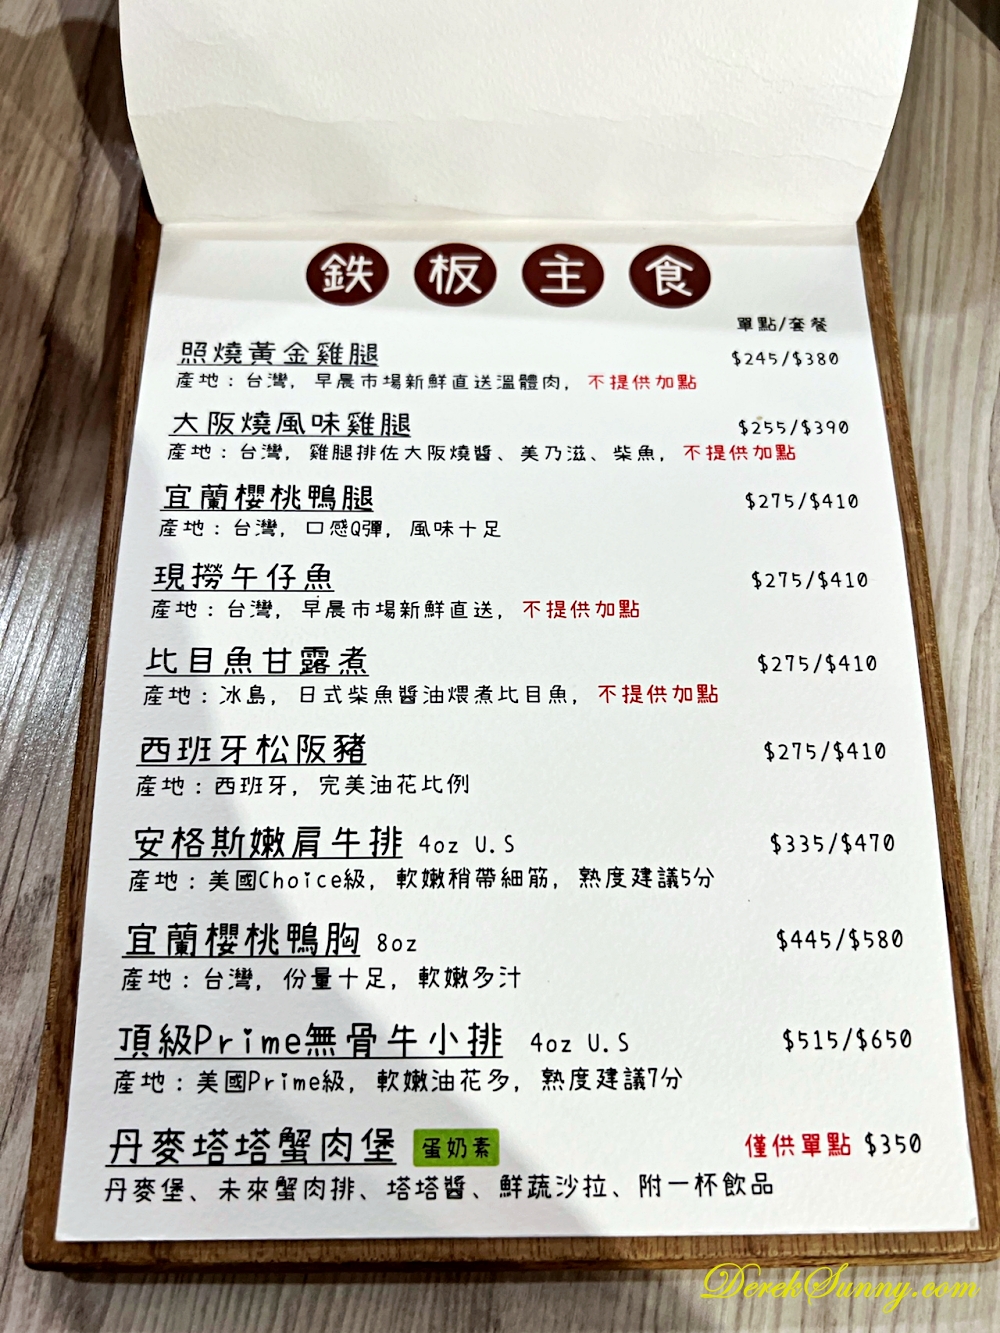 鉄板主食
單點/套餐
照燒黃金雞腿 $245/$380
產地：台灣, 早晨市場新鮮直送溫體肉, 不提供加點
大阪燒風味雞腿 $255/$390
產地：台灣, 雞腿排佐大阪燒醬、美乃滋、柴魚, 不提供加點
宜蘭櫻桃鴨腿 $275/$410
產地：台灣, 口感Q彈, 風味十足
現撈午仔魚 $275/$410
產地：台灣, 早晨市場新鮮直送, 不提供加點
比目魚甘露煮 $275/$410
產地：冰島, 日式柴魚醬油煨煮比目魚, 不提供加點
西班牙松阪豬 $275/$410
產地：西班牙, 完美油花比例
安格斯嫩肩牛排 4oz U.S $335/$470
產地：美國Choice級, 軟嫩稍帶細筋, 熟度建議5分
宜蘭櫻桃鴨胸 8oz $445/$580
產地：台灣, 份量十足, 軟嫩多汁
頂級Prime無骨牛小排 4oz U.S $515/$650
產地：美國Prime級, 軟嫩油花多, 熟度建議7分
丹麥塔塔蟹肉堡 蛋奶素 僅供單點 $350
丹麥堡、未來蟹肉排、塔塔醬、鮮蔬沙拉、附一杯飲品
DerekSunny.com